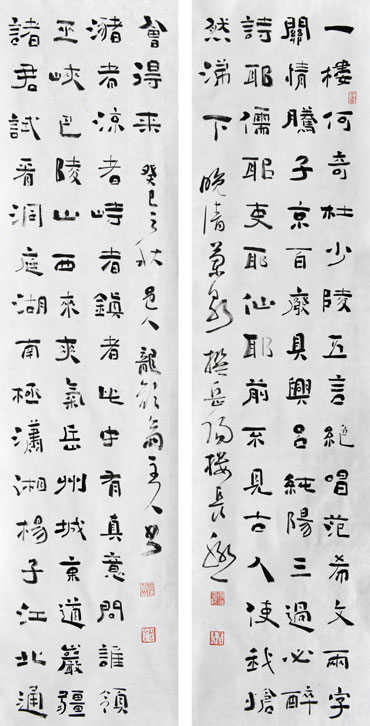 一樓何奇杜少陵五言絕唱范希文兩字
關情騰子京百廢具興呂純陽三過必醉
詩耶儒耶吏耶仙耶前不見古人使我愴
然涕下 晚清蘭泉撰岳陽樓長聯
諸君試看洞庭湖南極瀟湘楊子江北通
巫峽巴陵山西來爽氣岳州城東道巖疆
瀦者流者峙者鎮者此中有真意問誰領
會得来 癸巳之秋邑人龍齋主人書